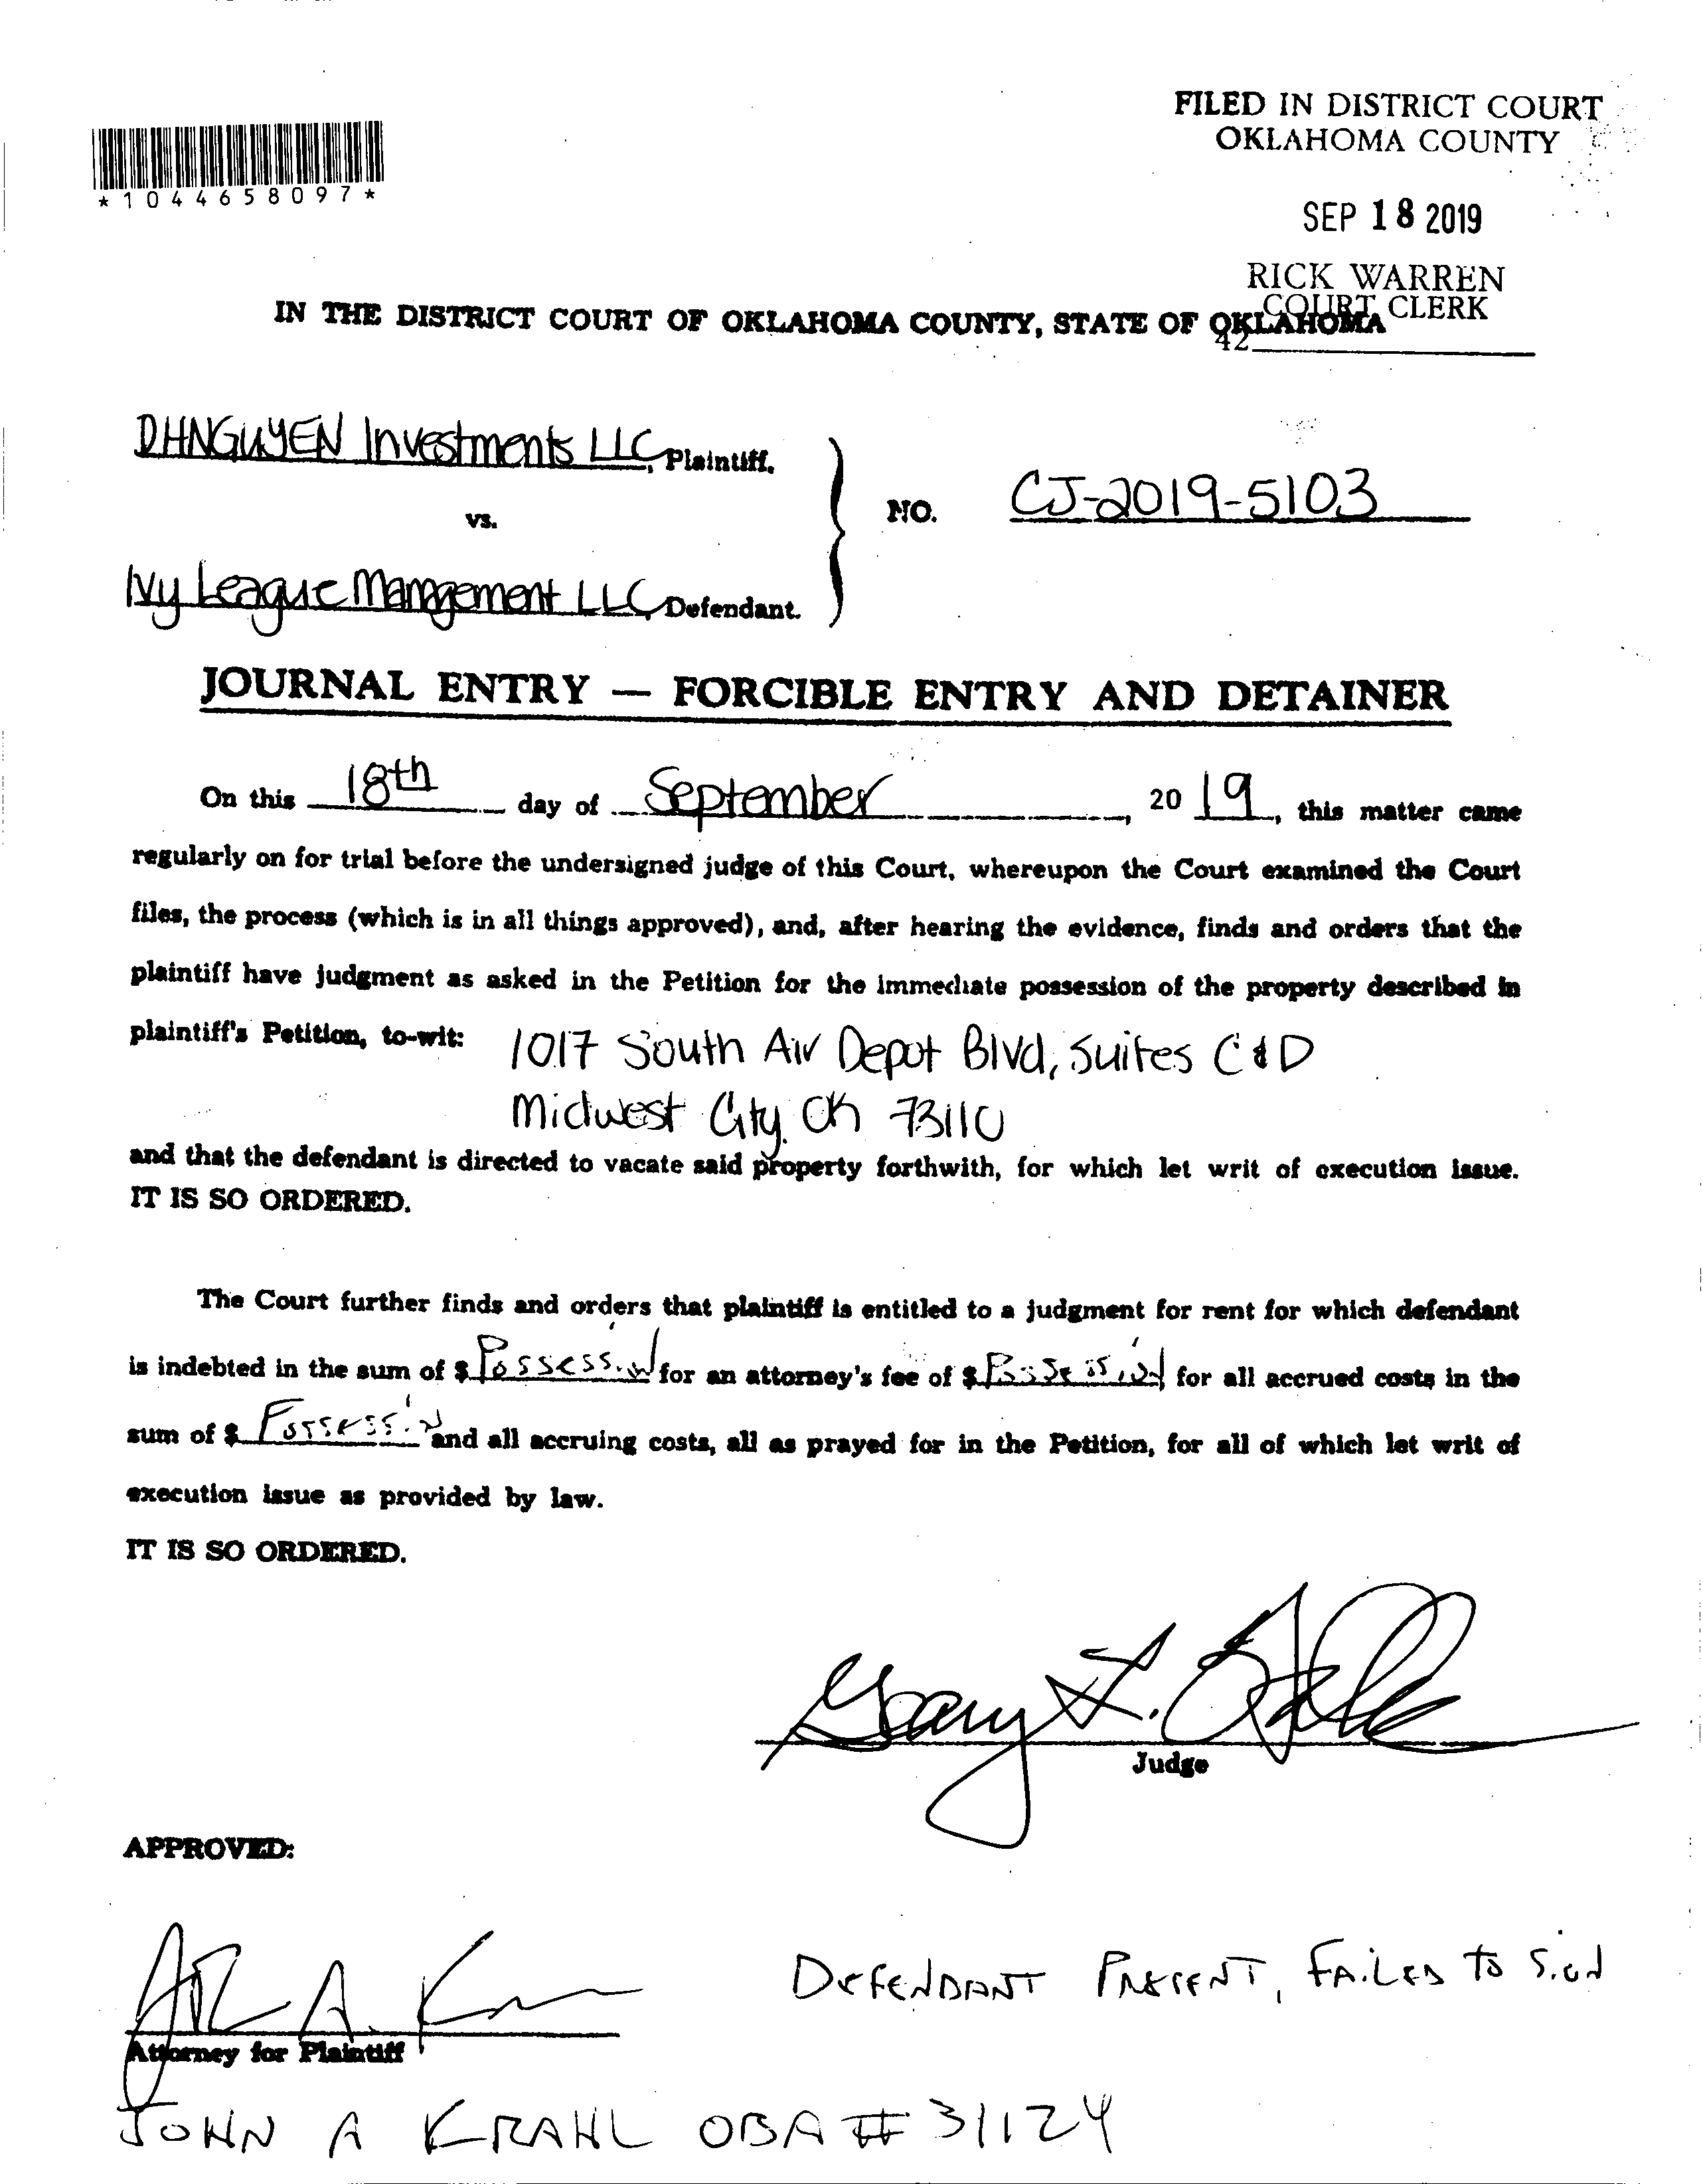 FILED IN DISTRICT COURT
OKLAHOMA COUNTY
*1044658097*
SEP 18 2019
RICK WARREN
COURT CLERK
IN THE DISTRICT COURT OF OKLAHOMA COUNTY, STATE OF OKLAHOMA
42
DHNGUYEN Investments LLC, Plaintiff,
vs.
NO. CJ-2019-5103
Ivy League Management LLC, Defendant.
JOURNAL ENTRY — FORCIBLE ENTRY AND DETAINER
On this 18th day of September, 2019, this matter came
regularly on for trial before the undersigned judge of this Court, whereupon the Court examined the Court
files, the process (which is in all things approved), and, after hearing the evidence, finds and orders that the
plaintiff have judgment as asked in the Petition for the immediate possession of the property described in
plaintiff's Petition, to-wit: 1017 South Air Depot Blvd, Suites C & D
Midwest City, OK 73110
and that the defendant is directed to vacate said property forthwith, for which let writ of execution issue.
IT IS SO ORDERED.
The Court further finds and orders that plaintiff is entitled to a judgment for rent for which defendant
is indebted in the sum of $ Possession for an attorney's fee of $ Possession for all accrued costs in the
sum of $ Possession and all accruing costs, all as prayed for in the Petition, for all of which let writ of
execution issue as provided by law.
IT IS SO ORDERED.
Judge
APPROVED:
DEFENDANT PRESENT, FAILED TO SIGN
Attorney for Plaintiff
JOHN A KRAHL OBA # 31124